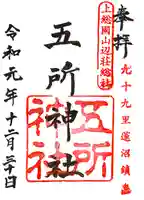 奉拝
上総國山辺荘総社
九十九里蓮沼鎮坐
五所神社
五所神社
令和元年十二月三十日